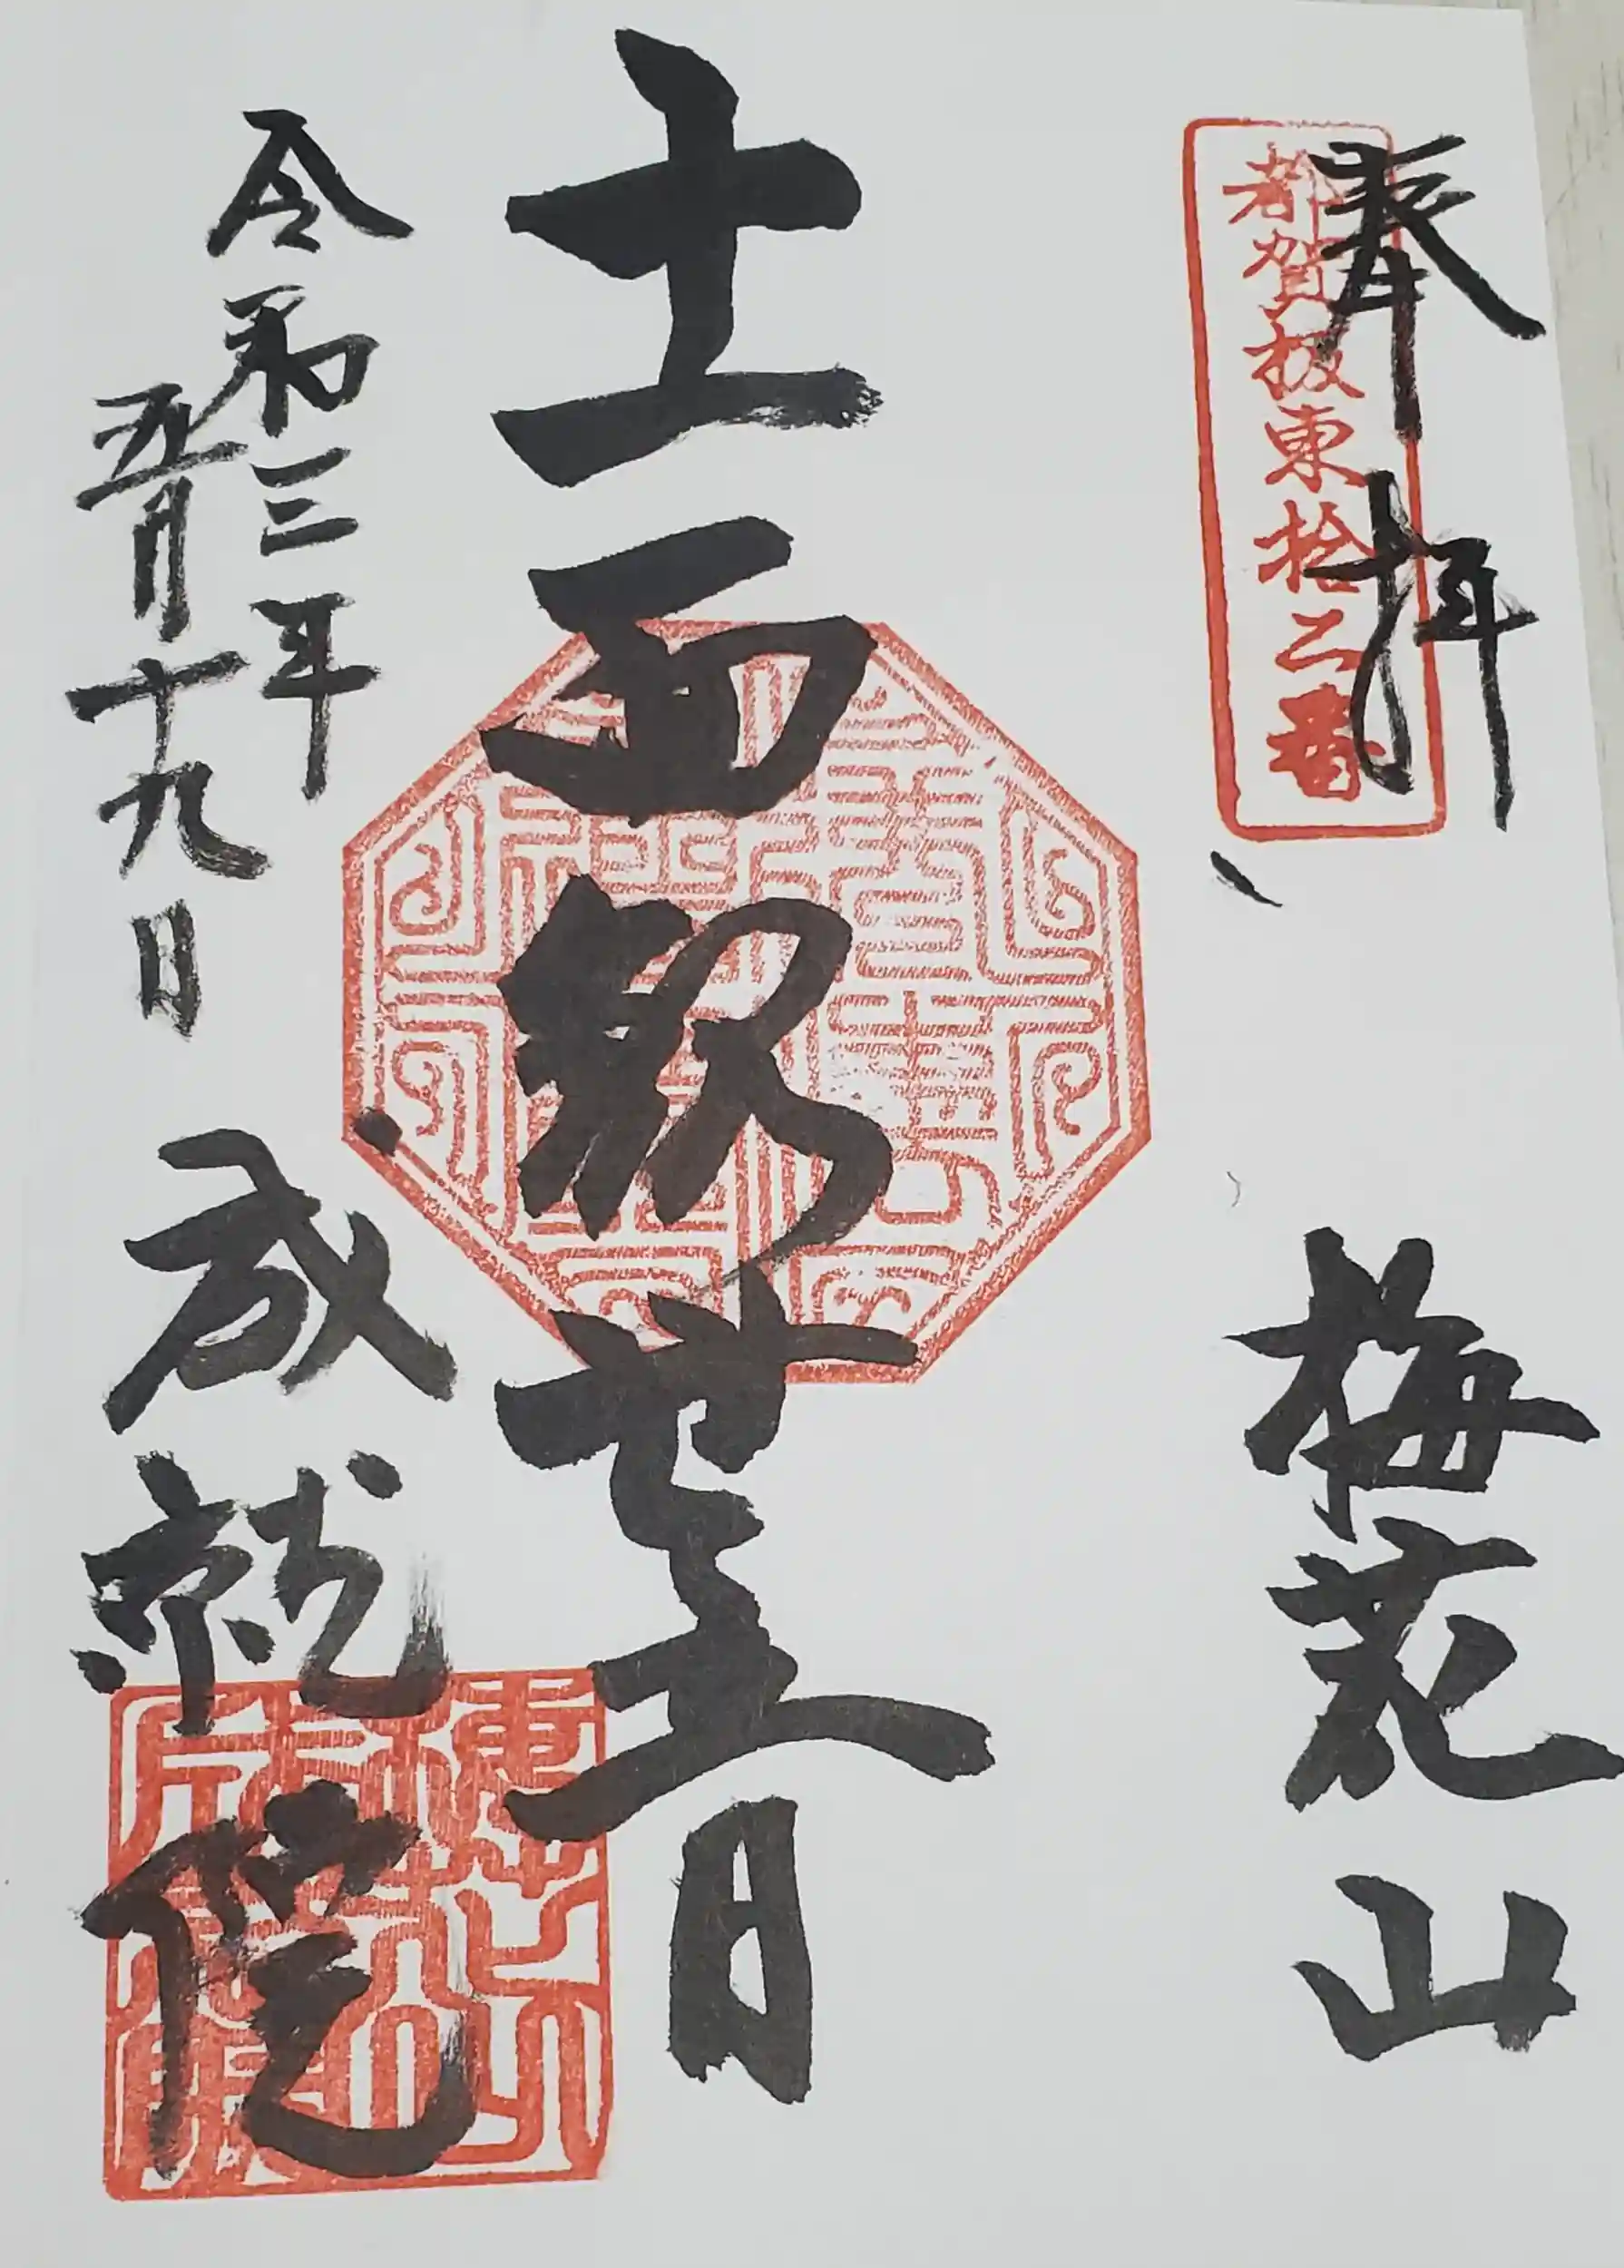 奉拝
都賀坂東拾二番
梅花山
十一面観世音
令和三年
五月十九日
成就院